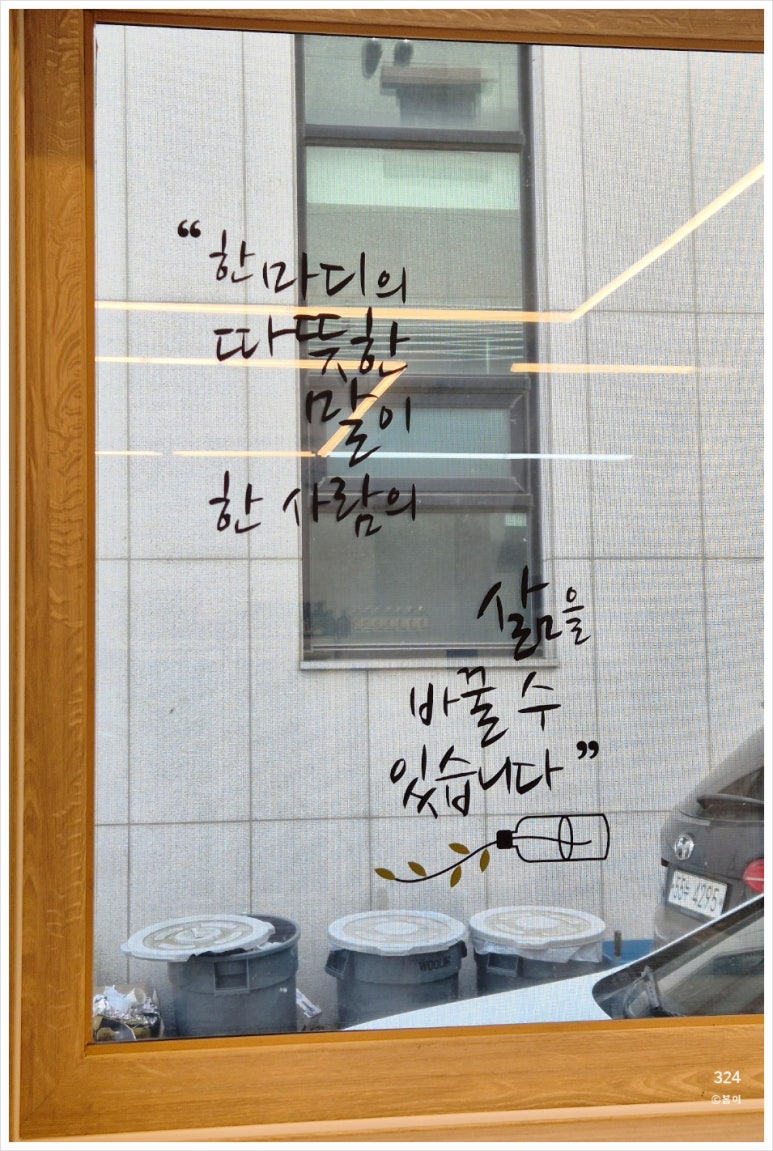 “한마디의
따뜻한
말이
한 사람의
삶을
바꿀 수
있습니다”
WOOLIM
4295
324
©봄이